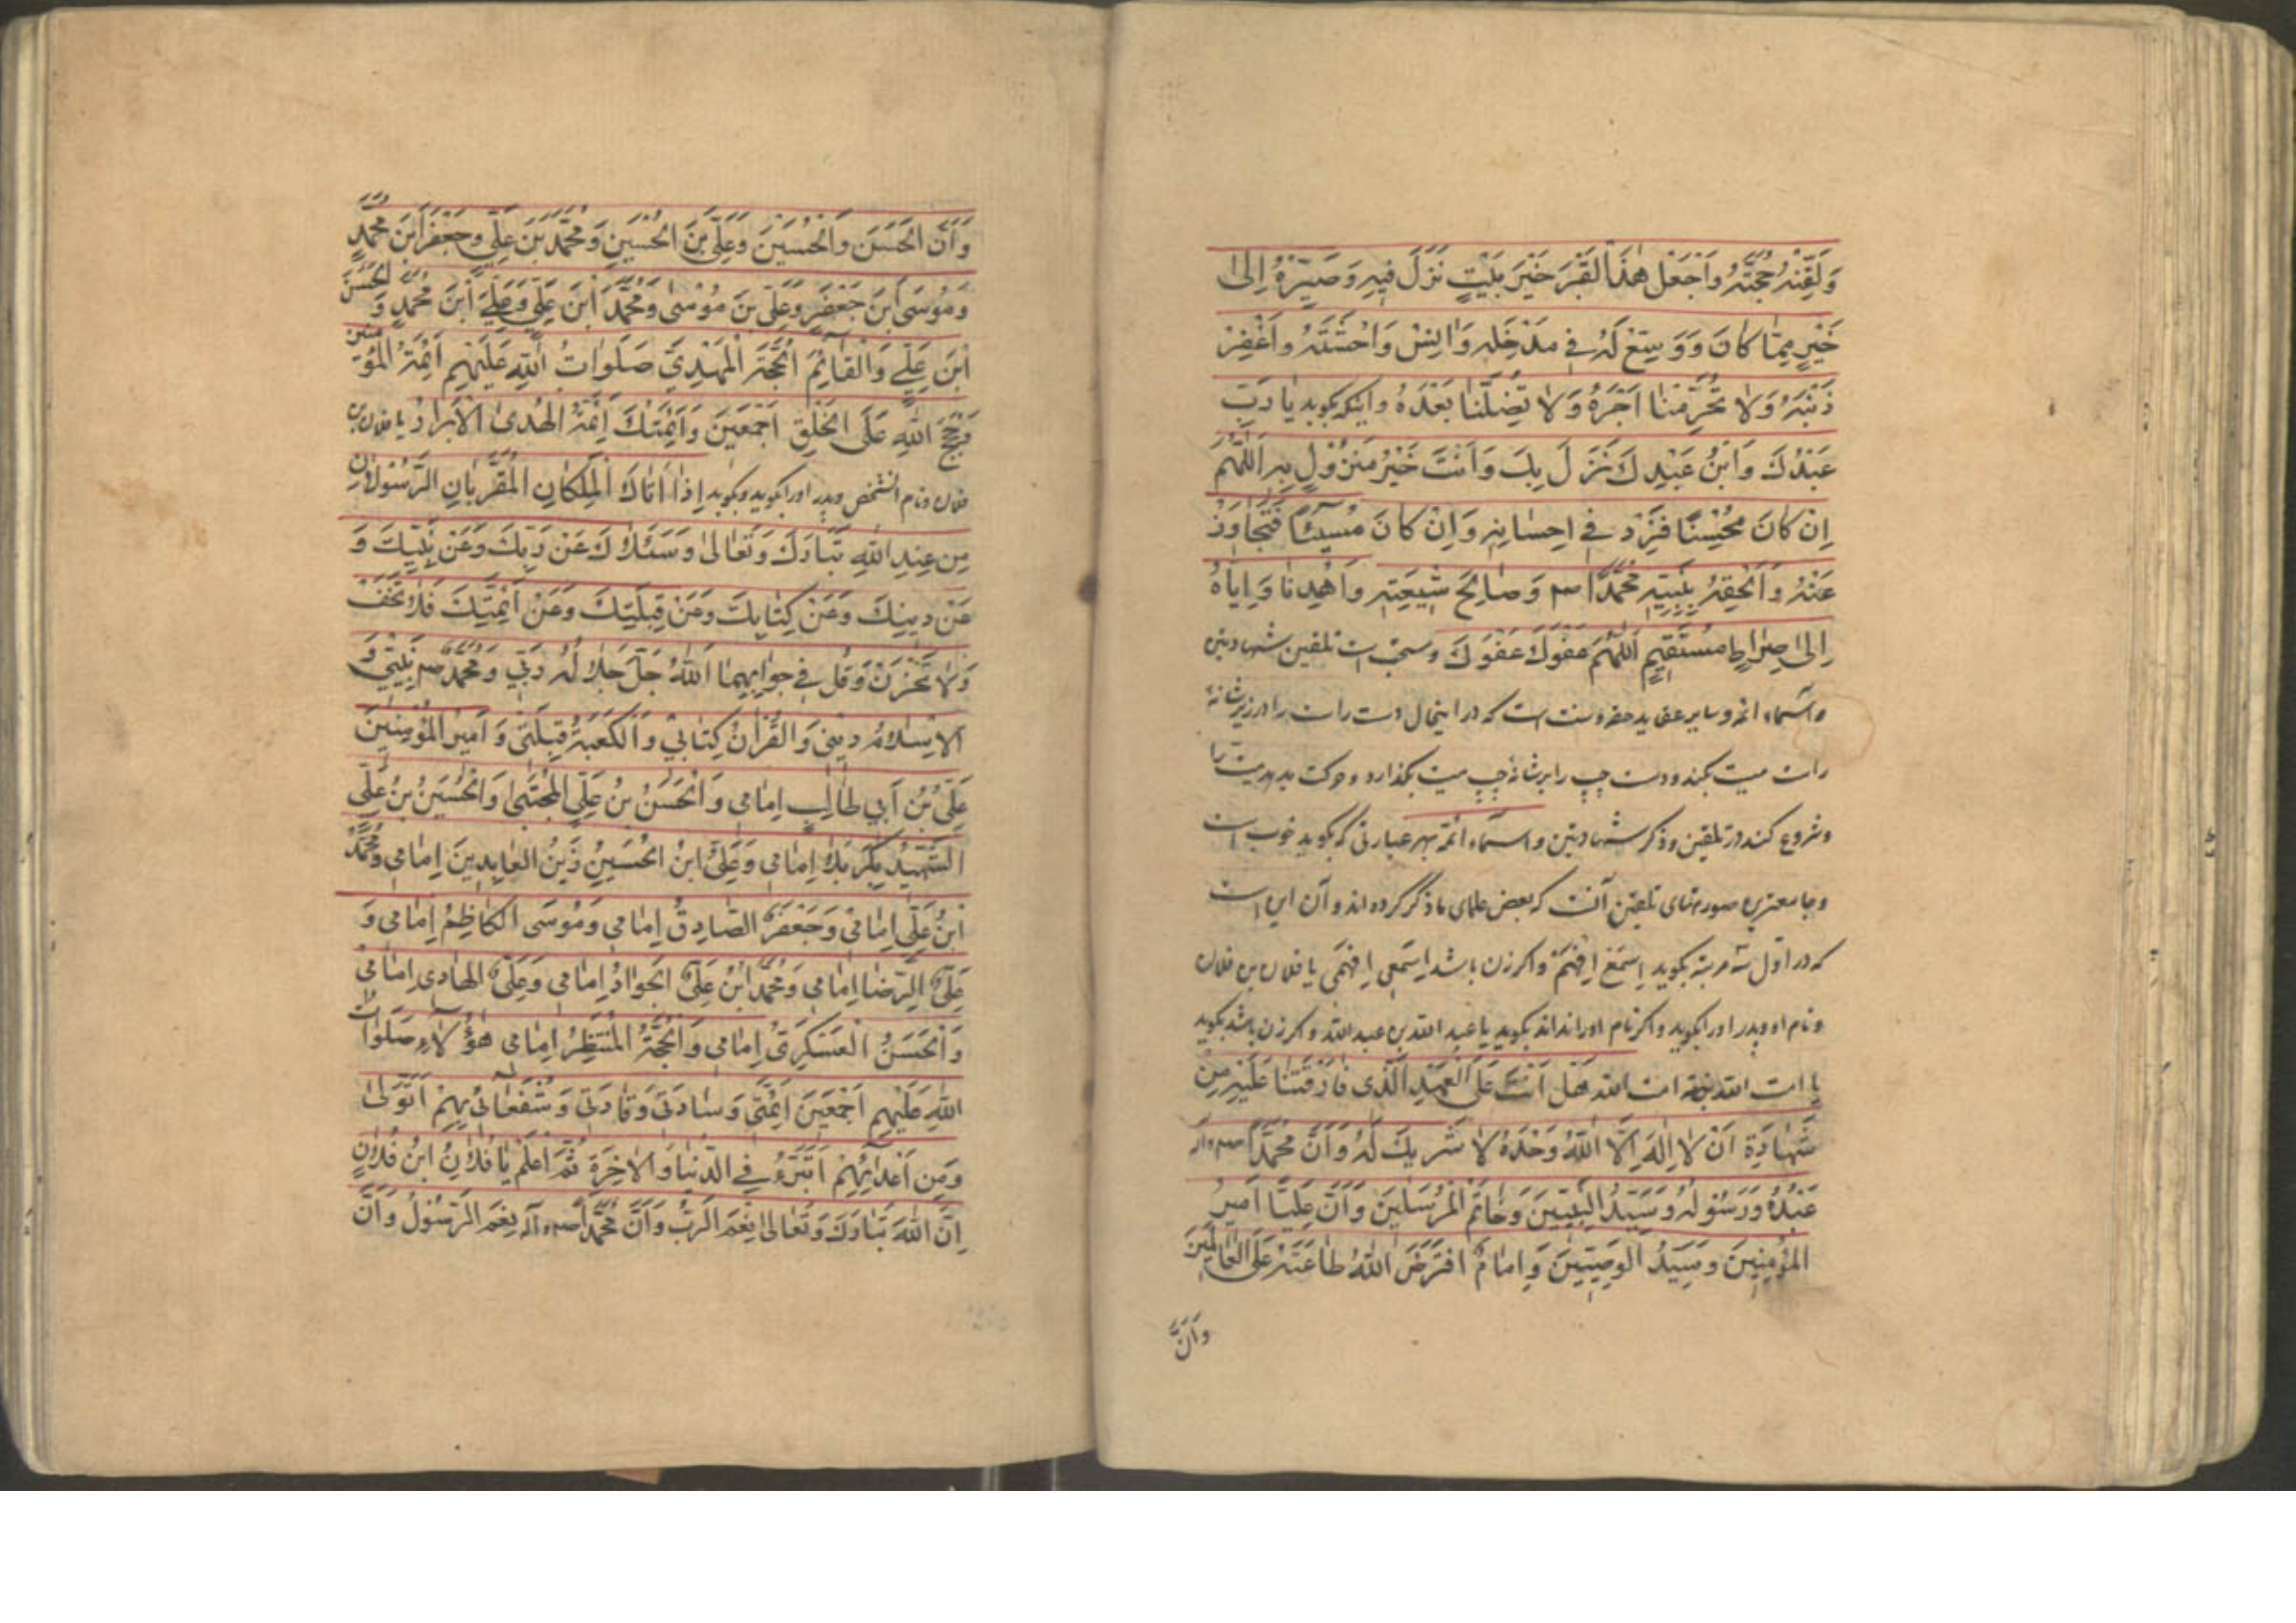 وَلَقِّنْهُ حُجَّتَهُ وَاجْعَلْ هٰذَا الْقَبْرَ خَيْرَ بَيْتٍ نَزَلَ فِيهِ وَصَيِّرْهُ اِلىٰ
خَيْرٍ مِمّا كانَ وَوَسِّعْ لَهُ فِي مَدْخَلِهِ وَانِسْ وَحْشَتَهُ وَاغْفِرْ
ذَنْبَهُ وَلا تَحْرِمْنا اَجْرَهُ وَلا تُضِلَّنا بَعْدَهُ واینکه بگوید یا رَبِّ
عَبْدُكَ وَابْنُ عَبْدِكَ نَزَلَ بِكَ وَاَنْتَ خَيْرُ مَنْزُولٍ بِهِ اَللّٰهُمَّ
اِنْ كانَ مُحْسِنًا فَزِدْ فِي اِحْسانِهِ وَاِنْ كانَ مُسِيئًا فَتَجاوَزْ
عَنْهُ وَاَلْحِقْهُ بِنَبِيِّهِ مُحَمَّدٍ صم وَصالِحِ شِيعَتِهِ وَاهْدِنا وَاِيّاهُ
اِلىٰ صِرٰاطٍ مُسْتَقِيمٍ اَللّٰهُمَّ عَفْوَكَ عَفْوَكَ ومستحب است تلقین شهادتین
واسماء ائمه وسایر عقاید حقه وسنت است که در اینحال دست راست را در زیر شانهٔ
راست میت بکند ودست چپ را بر شانهٔ چپ میت بگذارد وحرکت بدهد میت را
وشروع کند در تلقین وذکر شهادتین واسماء ائمه بهر عبارتی که بگوید خوب است
وجامعترین صورتهای تلقین آنست که بعض علمای ما ذکر کرده اند وآن این است
که در اوّل سه مرتبه بگوید اِسْمَعْ اِفْهَمْ واگر زن باشد اِسْمَعِی اِفْهَمِی یا فلان بن فلان
ونام او وپدر او را بگوید واگر نام او را نداند بگوید یا عبد الله بن عبد الله واگر زن باشد بگوید
یا امت الله بنت امت الله هَلْ اَنْتَ عَلَى الْعَهْدِ الَّذِي فارَقْتَنا عَلَيْهِ مِنْ
شَهادَةِ اَنْ لا اِلٰهَ اِلَّا اللهُ وَحْدَهُ لا شَرِيكَ لَهُ وَاَنَّ مُحَمَّدًا صم وآله
عَبْدُهُ وَرَسُولُهُ وَسَيِّدُ النَّبِيِّينَ وَخاتَمُ الْمُرْسَلِينَ وَاَنَّ عَلِيًّا اَمِيرُ
الْمُؤْمِنِينَ وَسَيِّدُ الْوَصِيِّينَ وَاِمامٌ افْتَرَضَ اللهُ طاعَتَهُ عَلَى الْعالَمِينَ
وَاَنَّ
وَاَنَّ الْحَسَنَ وَالْحُسَيْنَ وَعَلِيَّ بْنَ الْحُسَيْنِ وَمُحَمَّدَ بْنَ عَلِيٍّ وَجَعْفَرَ ابْنَ مُحَمَّدٍ
وَمُوسَى ابْنَ جَعْفَرٍ وَعَلِيَّ بْنَ مُوسٰى وَمُحَمَّدَ ابْنَ عَلِيٍّ وَعَلِيَّ ابْنَ مُحَمَّدٍ وَ الْحَسَنَ
ابْنَ عَلِيٍّ وَالْقائِمَ الْحُجَّةَ الْمَهْدِيَّ صَلَواتُ اللهِ عَلَيْهِمْ اَئِمَّةُ الْمُؤْمِنين
وَحُجَجُ اللهِ عَلَى الْخَلْقِ اَجْمَعِينَ وَاَئِمَّتَكَ اَئِمَّةُ الْهُدىٰ الْاَبْرارُ یا فلان بن
فلان ونام آنشخص وپدر او را بگوید وبگوید اِذا اَتاكَ الْمَلَكانِ الْمُقَرَّبانِ الرَّسُولانِ
مِنْ عِنْدِ اللهِ تَبارَكَ وَتَعالىٰ وَسَئَلاكَ عَنْ رَبِّكَ وَعَنْ نَبِيِّكَ وَ
عَنْ دِينِكَ وَعَنْ كِتابِكَ وَعَنْ قِبْلَتِكَ وَعَنْ اَئِمَّتِكَ فَلا تَخَفْ
وَلا تَحْزَنْ وَقُلْ فِي جَوابِهِما اَللهُ جَلَّ جَلالُهُ رَبِّي وَمُحَمَّدٌ صم نَبِيِّي وَ
الْاِسْلامُ دِينِي وَالْقُرْانُ كِتابِي وَالْكَعْبَةُ قِبْلَتِي وَاَمِيرُ الْمُؤْمِنِينَ
عَلِيُّ بْنُ اَبِي طالِبٍ اِمامِي وَالْحَسَنُ بْنُ عَلِيٍّ الْمُجْتَبىٰ وَالْحُسَيْنُ بْنُ عَلِيٍّ
الشَّهِيدُ بِكَرْبَلا اِمامِي وَعَلِيُّ ابْنُ الْحُسَيْنِ زَيْنُ الْعابِدِينَ اِمامِي وَمُحَمَّدُ
ابْنُ عَلِيٍّ اِمامِي وَجَعْفَرٌ الصّادِقُ اِمامِي وَمُوسَى الْكاظِمُ اِمامِي وَ
عَلِيٌّ الرِّضا اِمامِي وَمُحَمَّدُ ابْنُ عَلِيٍّ الْجَوادُ اِمامِي وَعَلِيٌّ الْهادِي اِمامِي
وَالْحَسَنُ الْعَسْكَرِيُّ اِمامِي وَالْحُجَّةُ الْمُنْتَظَرُ اِمامِي هٰؤُلاءِ صَلَواتُ
اللهِ عَلَيْهِمْ اَجْمَعِينَ اَئِمَّتِي وَسادَتِي وَقادَتِي وَشُفَعائِي بِهِمْ اَتَوَلّىٰ
وَمِنْ اَعْدائِهِمْ اَتَبَرَّءُ فِي الدُّنْيا وَالْاخِرَةِ ثُمَّ اعْلَمْ یا فُلانُ ابْنُ فُلانٍ
اِنَّ اللهَ تَبارَكَ وَتَعالىٰ نِعْمَ الرَّبُّ وَاَنَّ مُحَمَّدًا صم وآله نِعْمَ الرَّسُولُ وَاَنَّ